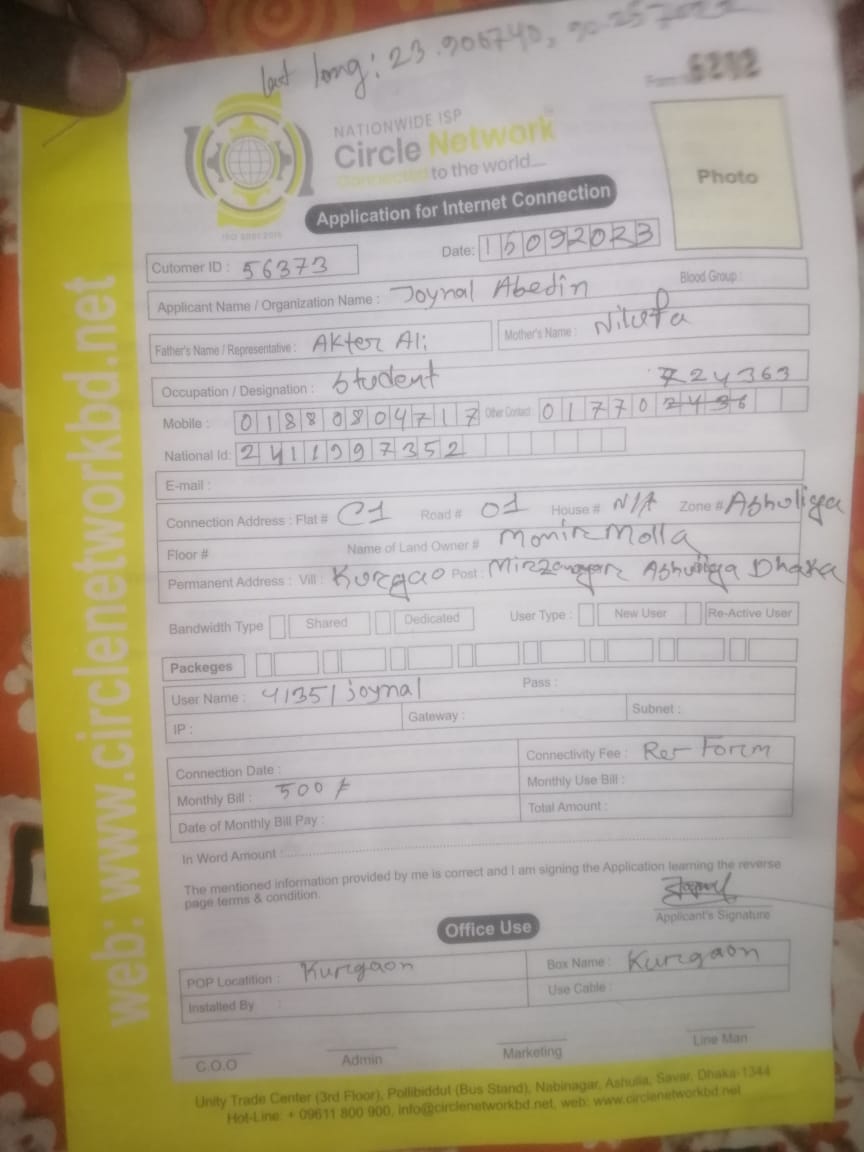 last long: 23.906740,
Form 6292
NATIONWIDE ISP
Circle Network
Connected to the world....
ISO 9001:2015
Photo
Application for Internet Connection
Date: 15092023
Cutomer ID : 56373
Applicant Name / Organization Name : Joynal Abedin Blood Group :
Father's Name / Representative : Akter Ali Mother's Name : Nilufa
Occupation / Designation : Student 724363
Mobile : 01880804717 Other Contact : 017702436
National Id: 2411997352
E-mail :
Connection Address : Flat # C1 Road # 01 House # N/A Zone # Ashuliya
Floor # Name of Land Owner # Monir Molla
Permanent Address : Vill : Kurgao Post : Mirzanagar Ashuliya Dhaka
Bandwidth Type Shared Dedicated User Type : New User Re-Active User
Packeges
User Name : 41351joynal Pass :
IP : Gateway : Subnet :
Connection Date : Connectivity Fee : Re-Form
Monthly Bill : 500 Monthly Use Bill :
Date of Monthly Bill Pay : Total Amount :
In Word Amount :
The mentioned information provided by me is correct and I am signing the Application learning the reverse
page terms & condition.
Applicant's Signature
Office Use
POP Locatition : Kurgaon Box Name : Kurgaon
Installed By : Use Cable :
C.O.O Admin Marketing Line Man
Unity Trade Center (3rd Floor), Pollibiddut (Bus Stand), Nabinagar, Ashulia, Savar, Dhaka-1344
Hot-Line: + 09611 800 900, info@circlenetworkbd.net, web: www.circlenetworkbd.net
web: www.circlenetworkbd.net